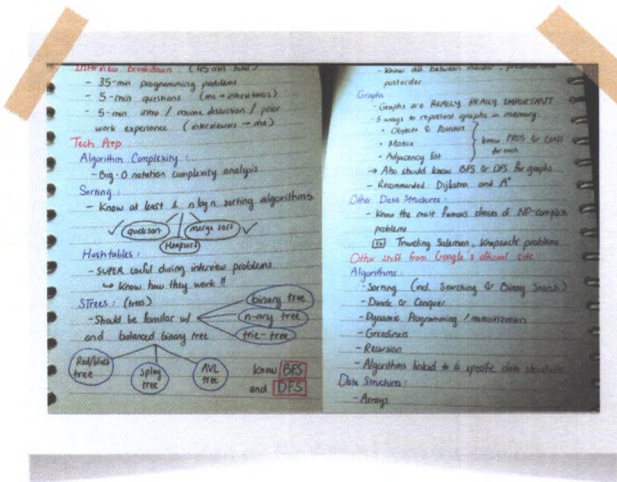 Interview Breakdown (45-min total)
- 35-min programming problems
- 5-min questions (me → interviewers)
- 5-min intro / resume discussion / prior
work experience (interviewers → me)
Tech Prep
Algorithm Complexity:
- Big-O notation complexity analysis
Sorting:
- Know at least 2 n log n sorting algorithms
✓ quicksort
heapsort
merge sort ✓
Hashtables:
- SUPER useful during interview problems
↳ Know how they work!!
STrees: (trees)
- Should be familiar w/
binary tree
n-ary tree
trie-tree
and balanced binary tree
Red/black
tree
splay
tree
AVL
tree
Know BFS
and DFS
- Know diff between inorder,
postorder
Graphs
- Graphs are REALLY REALLY IMPORTANT
- 3 ways to represent graphs in memory:
• Objects & Pointers
• Matrix
• Adjacency list
know PROS & CONS
for each
→ Also should know BFS & DFS for graphs
- Recommended: Dijkstra and A*
Other Data Structures:
- Know the most famous classes of NP-complete
problems
Ex Traveling Salesman, Knapsack problems
Other stuff from Google's official site
Algorithms:
- Sorting (incl. Searching & Binary Search)
- Divide & Conquer
- Dynamic Programming / memoization
- Greediness
- Recursion
- Algorithms linked to a specific data structure
Data Structures:
- Arrays